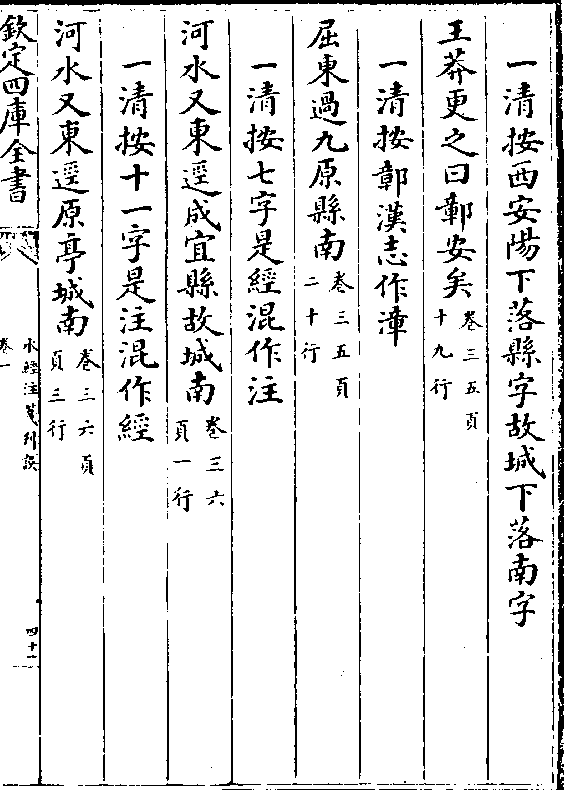 一清按西安陽下落縣字故城下落南字
王莽更之曰鄣安矣卷三五頁十九行
一清按鄣漢志作漳
屈東過九原縣南卷三五頁二十行
一清按七字是經混作注
河水又東逕成宜縣故城南卷三六頁一行
一清按十一字是注混作經
河水又東逕原亭城南卷三六頁三行
欽定四庫全書
水經注箋刋誤
卷一
四十一